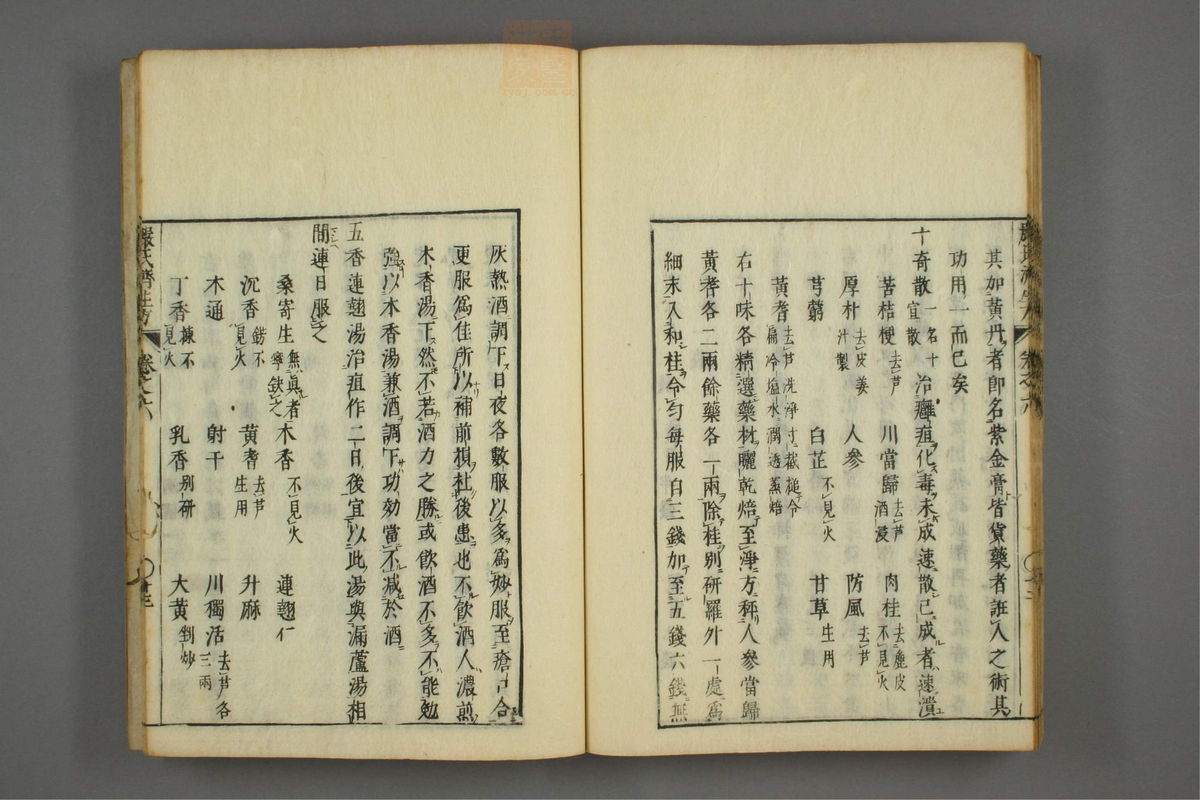 其如黃丹者即名紫金膏皆貨藥者誑人之術其
功用一而已矣
十奇散一名十宣散治癰疽化毒未成速散已成者速潰
苦桔梗去芦 川當歸去芦酒浸 肉桂去麁皮不見火
厚朴去皮姜汁製 人參 防風去芦
芎藭 白芷不見火 甘草生用
黃耆去芦洗淨寸截槌令扁冷塩水潤透蒸焙
右十味各精選藥材曬乾焙至淨方秤人參當歸
黃耆各二兩餘藥各一兩除桂别研羅外一處爲
細末入和桂令匀每服自三錢加至五錢六錢無
灰熱酒調下日夜各數服以多爲妙服至瘡口合
更服爲佳所以補前損杜後患也不飲酒人濃煎
木香湯下然不若酒力之勝或飲酒不多不能勉
強以木香湯兼酒調下功効當不減於酒
五香連翹湯治疽作二日後宜以此湯與漏蘆湯相
間連日服之
桑寄生無眞者寧缺之 木香不見火 連翹仁
沉香鎊不見火 黃耆去芦生用 升麻
木通 射干 川獨活去芦各三兩
丁香揀不見火 乳香别研 大黃剉炒
嚴氏濟生方 卷之六